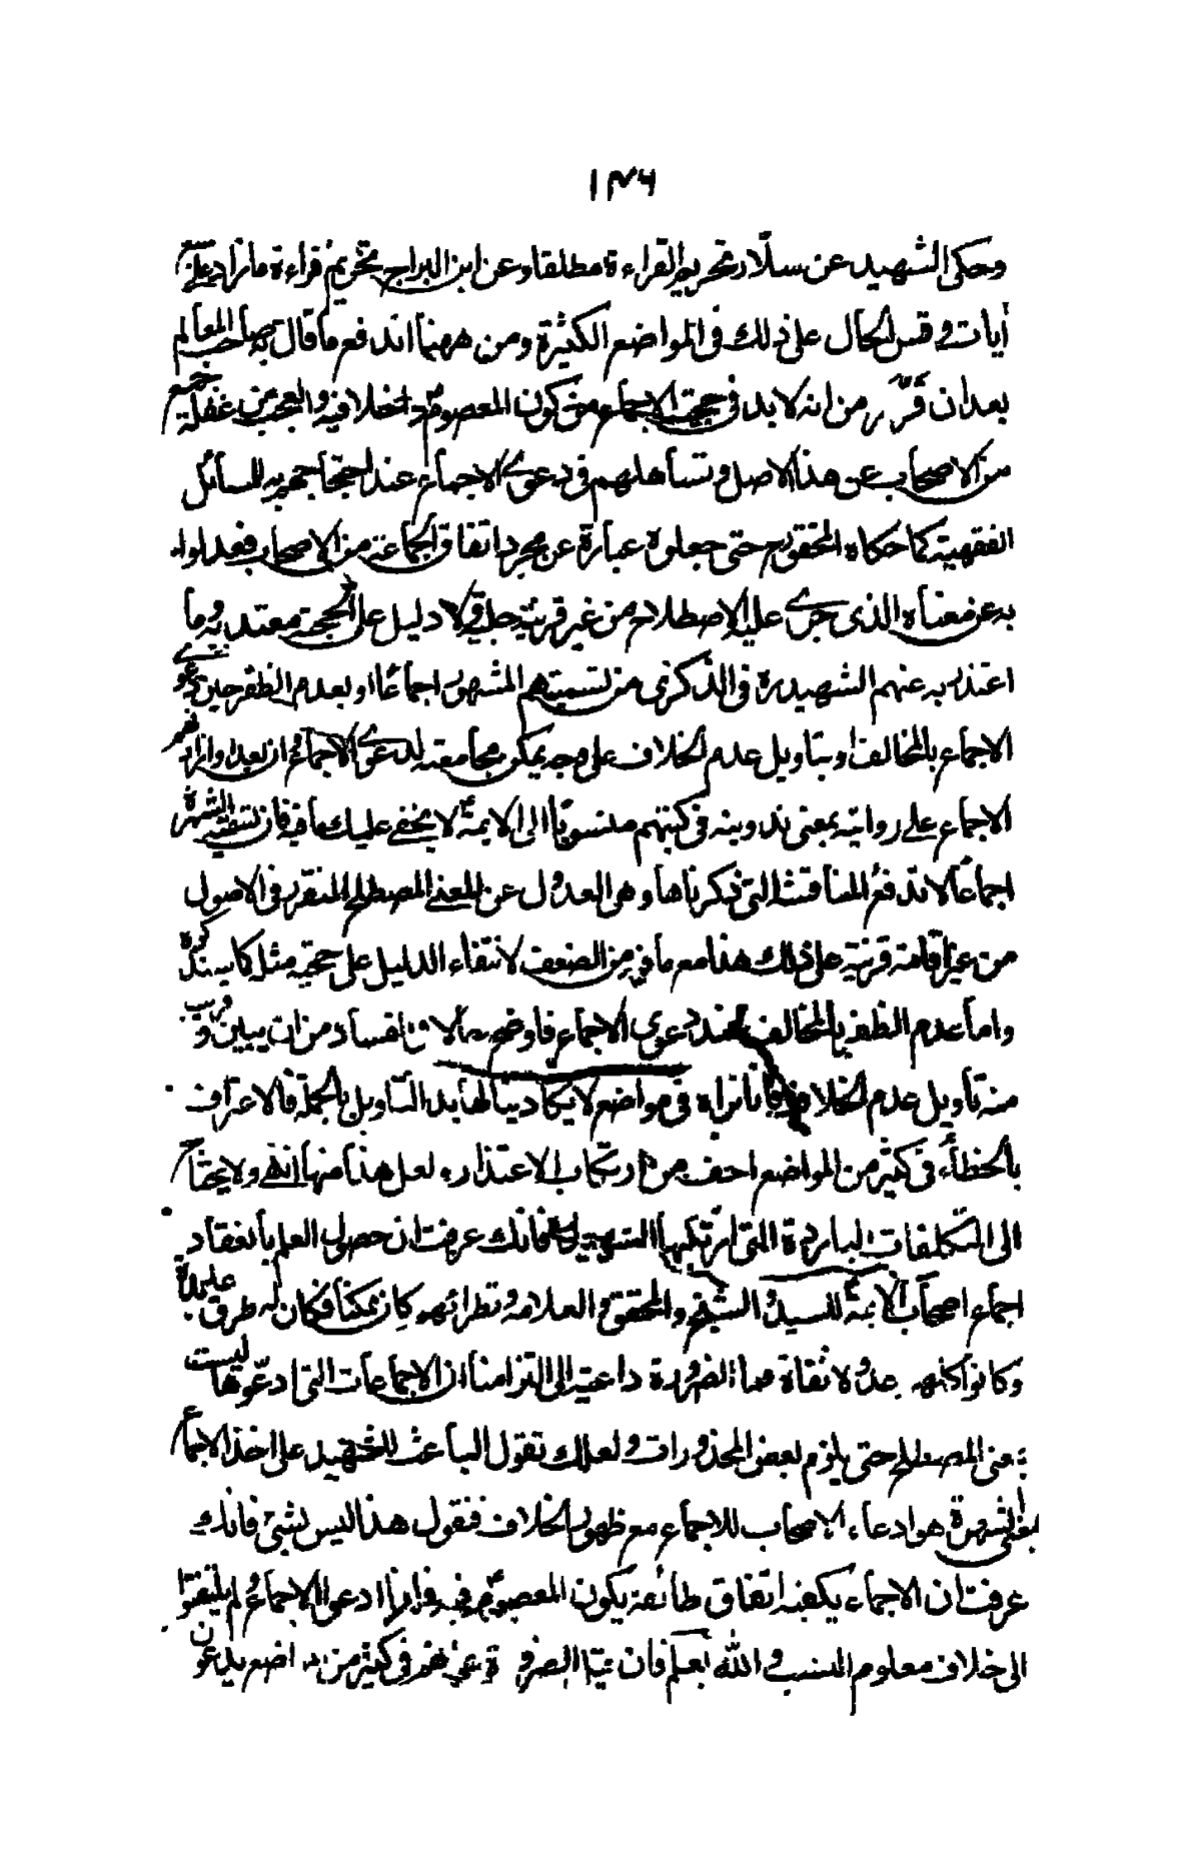 ١٣٦
وحكى الشهيد عن سلّار تحريم القراءة مطلقا وعن ابن البراج تحريم قراءة ما زاد على سبع
آيات وقس الحال على ذلك في المواضع الكثيرة ومن ههنا اندفع ما قال به صاحب المعالم
بعد ان قرّر من انه لا بد في حجية الاجماع من كون المعصوم داخلا فيه والعجب من غفلة جمع
من الاصحاب عن هذا الاصل وتساهلهم في دعوى الاجماع عند احتجاجهم به للمسائل
الفقهية كما حكاه المحقق ره حتى جعلوه عبارة عن مجرد اتفاق الجماعة من الاصحاب فعدلوا
به عن معناه الذي جرى عليه الاصطلاح من غير قرينة جلية ولا دليل على الحجية معتد به وما
اعتذر به عنهم الشهيد ره في الذكرى من تسميتهم المشهور اجماعا او بعدم الظفر حين دعوى
الاجماع بالمخالف او بتاويل عدم الخلاف على وجه يمكن مجامعته لدعوى الاجماع وان بعد او ارادتهم
الاجماع على روايته بمعنى تدوينه في كتبهم منسوبا الى الايمة لا يخفى عليك ما فيه فان تسمية الشهرة
اجماعا لا تدفع المناقشة التي ذكرناها وهي العدول عن المعنى المصطلح المتقرر في الاصول
من غير اقامة قرينة على ذلك هذا مع ما فيه من الضعف لانتفاء الدليل على حجية مثله كما سنذكره
واما عدم الظفر بالمخالف عند دعوى الاجماع فاوضح حالا في الفساد من ان يبين وقريب
منه تأويل عدم الخلاف فانا نراه في مواضع لا يكاد ينالها يد التأويل بالجملة فالاعتراف
بالخطاء في كثير من المواضع اخف من ارتكاب الاعتذار ولعل هذا منها انتهى ولا يحتاج
الى التكلفات الباردة التي ارتكبها الشهيد فانك عرفت ان حصول العلم بانعقاد
اجماع اصحاب الائمة للسيد والشيخ والمحقق والعلامة ونظرائهم كان ممكنا فكان له طرق عديدة
وكانوا كلهم عدولا ثقاة فما الضرورة داعية الى التزامنا ان الاجماعات التي ادعوها ليست
بمعنى المصطلح حتى يلزم بعض المحذورات ولعلك تقول الباعث للشهيد على اخذ الاجماع
بمعنى الشهرة هو ادعاء الاصحاب للاجماع مع ظهور الخلاف فنقول هذا ليس بشئ فانك
عرفت ان الاجماع يكفيه اتفاق طائفة يكون المعصوم فيه واذا ادعى الاجماع لم يلتفتوا
الى خلاف معلوم النسب والله يعلم فان في كثير من المواضع يدعون